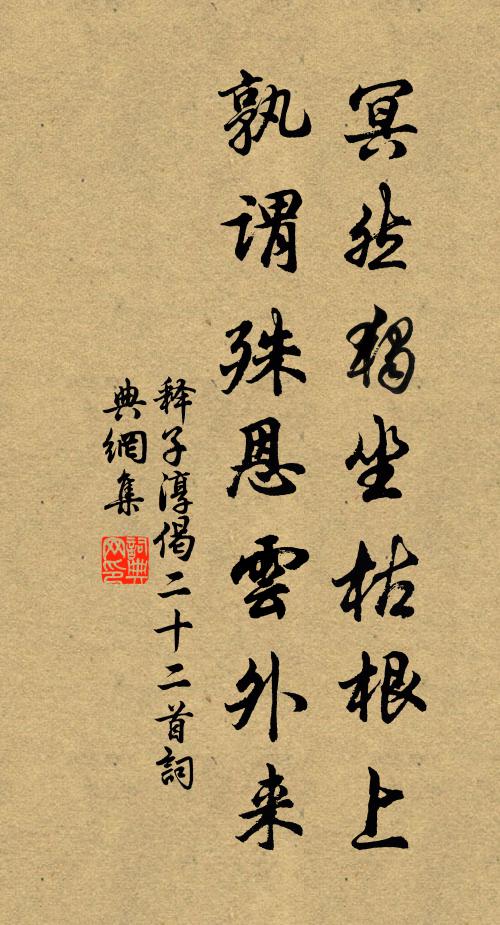 冥然独坐枯根上
孰谓殊恩雲外来
释子淳偈二十二首詞
典網集
詞典
网印